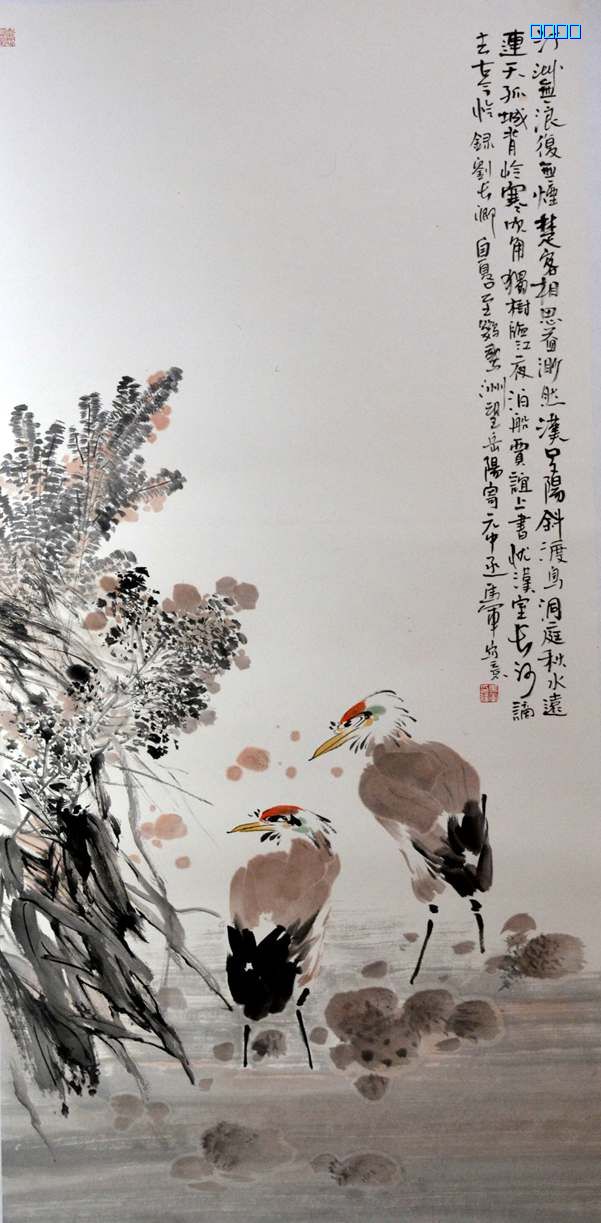 汀洲無浪復無煙楚客相思益渺然漢口夕陽斜渡鳥洞庭秋水遠
連天孤城背岭寒吹角獨樹臨江夜泊船賈誼上書忧漢室長沙謫
去古今怜 録劉長卿自夏口至鸚鵡洲望岳陽寄元中丞馬軍寫意